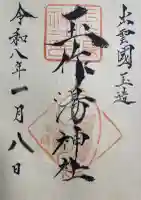 出雲國玉造
玉作湯神社
令和八年一月八日